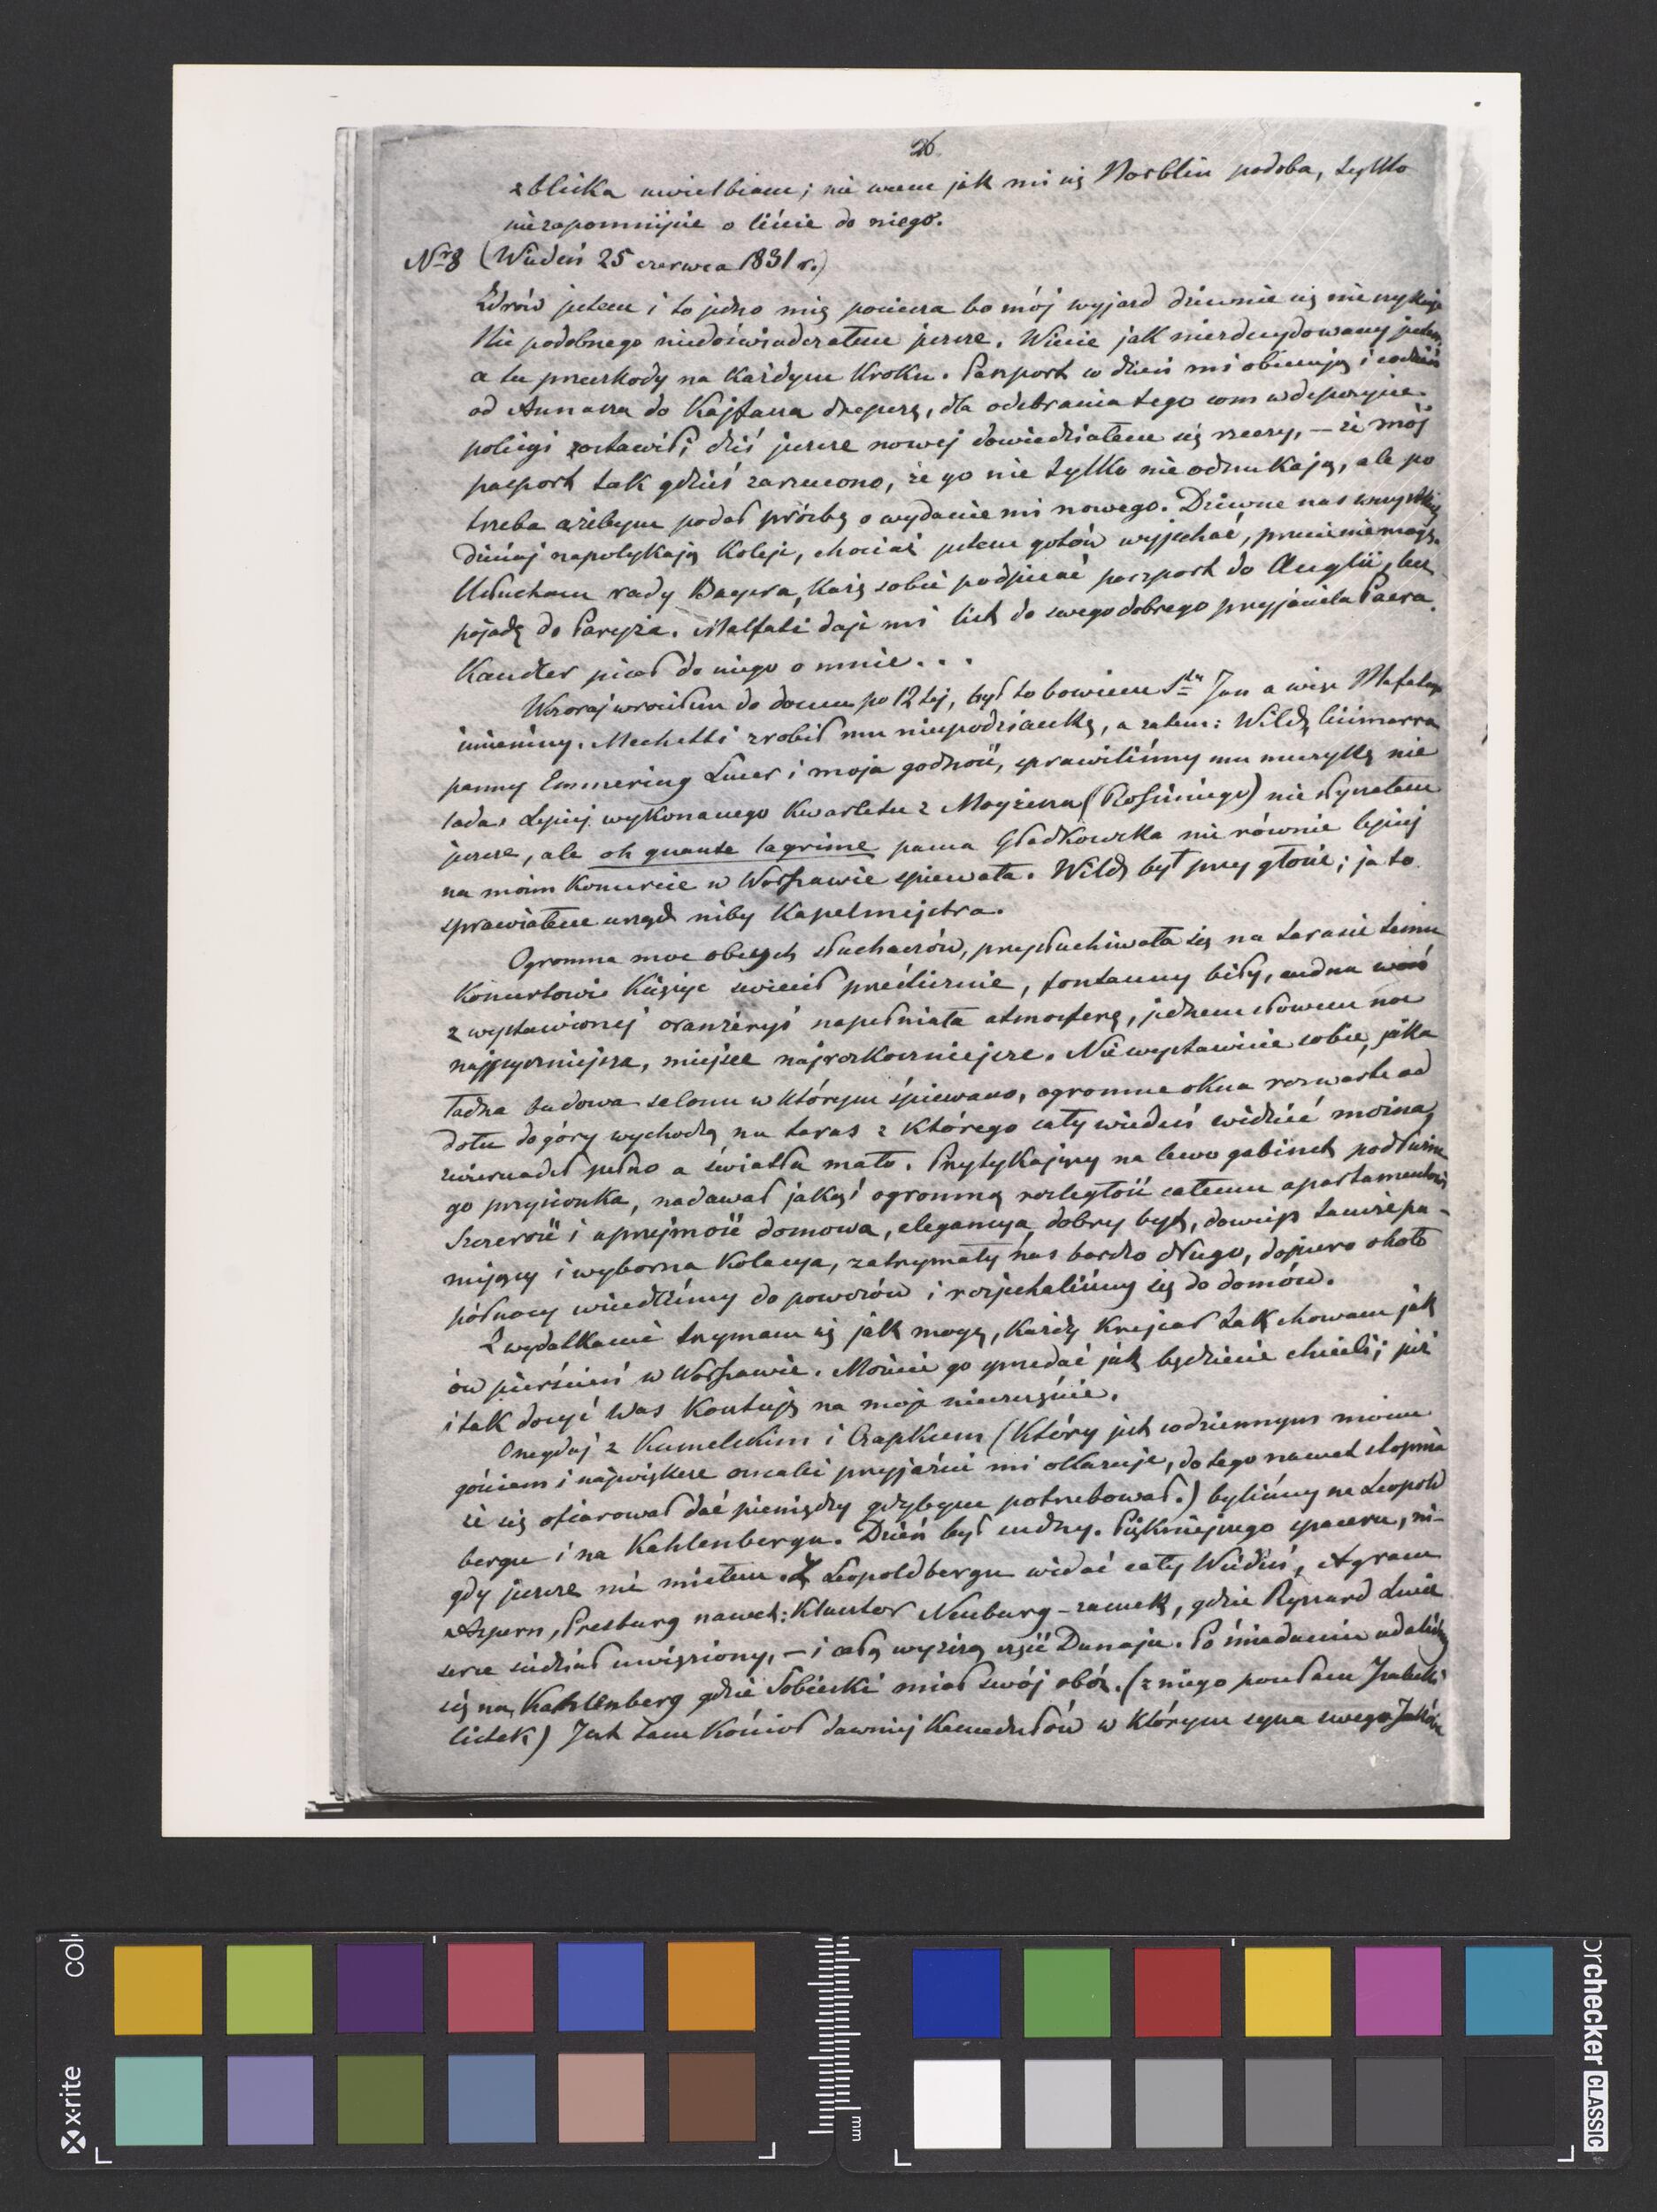 26
zbliska uwielbiam; nie wiem jak mi się Norblin podoba, tylko
niezapomnijcie o liście do niego.
Nr 8 (Wiedeń 25 czerwca 1831 r.)
Zdrów jestem i to jedno mię pociesza bo mój wyjazd dziwnie się nie
Nic podobnego niedoświadczałem jeszcze. Wiecie jak niezdecydowany jestem,
a tu przeszkody na każdym kroku. Paszport co dzień mi obiecują i codzień
od Annasza do Kajfasza drepczę, dla odebrania tego com w depozycie
policyi zostawił; dziś jeszcze nowej dowiedziałem się rzeczy, – że mój
paszport tak gdzieś zarzucono, że go nie tylko nie odszukają, ale po
trzeba ażebym podał prózbę o wydanie mi nowego. Dziwne nas wszystkich
dzisiaj napotykają koleje, chociaż jestem gotów wyjechać, przecie nie mogę.
Usłucham rady Bayera, każę sobie podpisać paszport do Anglii, lecz
pojadę do Paryża. Malfati daje mi list do swego dobrego przyjaciela Paera.
Kandler pisał do niego o mnie...
Wczoraj wróciłem do domu po 12tej, był to bowiem Sty Jan a więc Malfatego
imieniny. Mechetti zrobił mu niespodziankę, a zatem: Wild, Cicimarra
panny Emmering Lucer i moja godność, sprawiliśmy mu muzykę nie
lada. Lepiej wykonanego kwartetu z Mojżesza (Rossiniego) nie słyszałem
jeszcze, ale oh quante lagrime panna Gładkowska nie równie lepiej
na moim koncercie w Warszawie śpiewała. Wild był przy głosie; ja to
sprawiałem urząd niby Kapelmejstra.
Ogromna moc obcych słuchaczów, przysłuchiwała się na tarasie temu
koncertowi Księżyc świecił prześlicznie, fontanny biły, cudna woń
z wystawionej oranżeryi napełniała atmosferę, jednem słowem noc
najpyszniejsza, miejsce najrozkoszniejsze. Nie wystawicie sobie, jaka
ładna budowa salonu w którym śpiewano, ogromne okna rozwarte od
dołu do góry wychodzą na taras z którego cały wiedeń widzieć można,
zwierciadeł pełno a światła mało. Przytykający na lewo gabinet podłużne
go przysionka, nadawał jakąś ogromną rozległość całemu apartamentowi
Szczerość i uprzejmość domowa, elegancya, dobry byt, dowcip tamże pa-
nujący i wyborna kolacya, zatrzymały nas bardzo długo, dopiero około
północy wsiedliśmy do powozów i rozjechaliśmy się do domów.
Z wydatkami trzymam się jak mogę, każdy krejcar tak chowam jak
ów pierścień w Warszawie. Możcie go sprzedać jak będziecie chcieli; już
i tak dosyć Was kosztuję na moje nieszczęście.
Onegdaj z Kumelskim i Czapkiem (który jest codziennym moim
gościem i największe oznaki przyjaźni mi okazuje, do tego nawet stopnia
że się ofiarował dać pieniędzy gdybym potrzebował.) byliśmy na Leopold
bergu i na Kahlenbergu. Dzień był cudny. Piękniejszego spaceru, ni-
gdy jeszcze nie miałem. Z Leopoldbergu widać cały Wiedeń, Agram
Aspern, Presburg nawet; Klauster Neuburg – zamek, gdzie Ryszard Lwie
serce siedział uwięziony, – i całą wyższą część Dunaju. Po śniadaniu udaliśmy
się na, Kahlenberg gdzie Sobieski miał swój obóz. (z niego posłam Izabelli
listek) Jest tam kościół dawniej Kamedułów w którym syna swego Jakóba